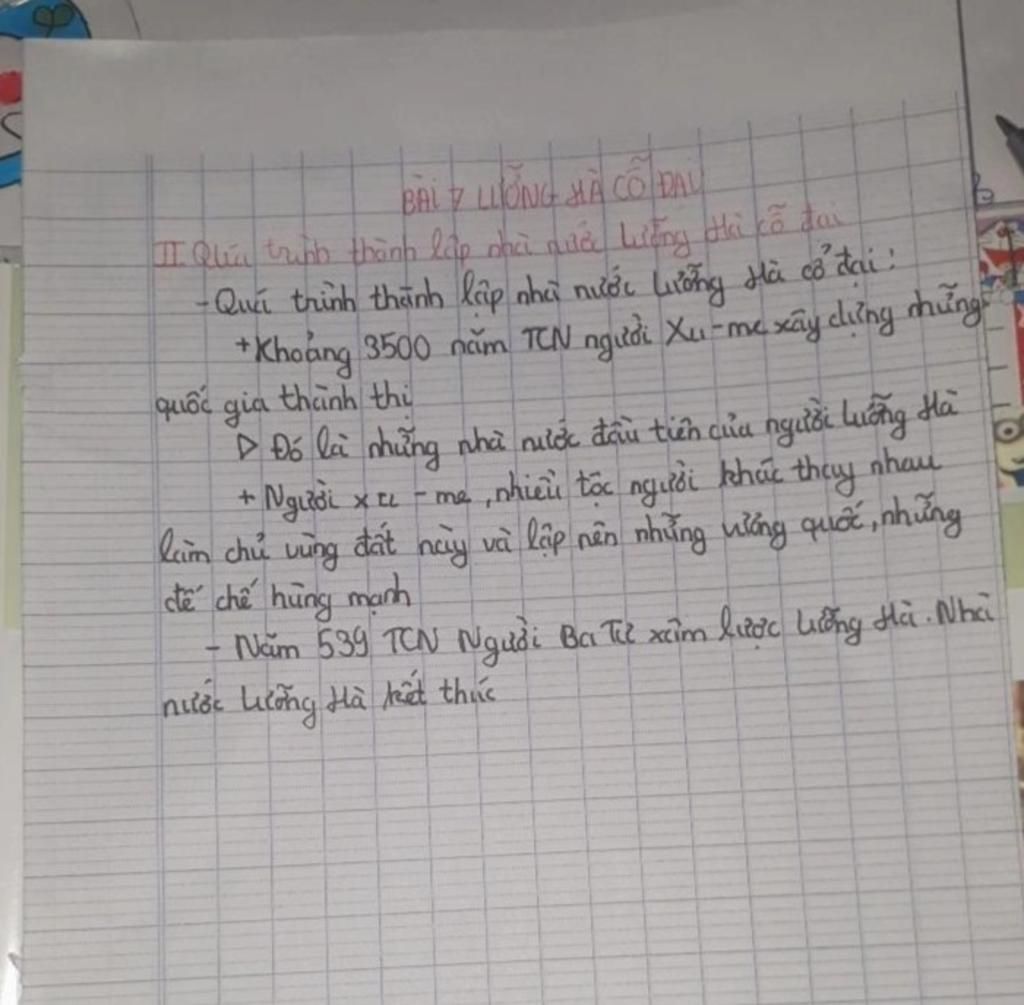 BÀI 7 LƯỠNG HÀ CỔ ĐẠI
II Quá trình thành lập nhà nước Lưỡng Hà cổ đại
- Quá trình thành lập nhà nước Lưỡng Hà cổ đại:
+ Khoảng 3500 năm TCN người Xu-me xây dựng những
quốc gia thành thị
▷ Đó là những nhà nước đầu tiên của người Lưỡng Hà
+ Người xu-me, nhiều tộc người khác thay nhau
làm chủ vùng đất này và lập nên những vương quốc, những
đế chế hùng mạnh
- Năm 539 TCN Người Ba Tư xâm lược Lưỡng Hà. Nhà
nước Lưỡng Hà kết thúc